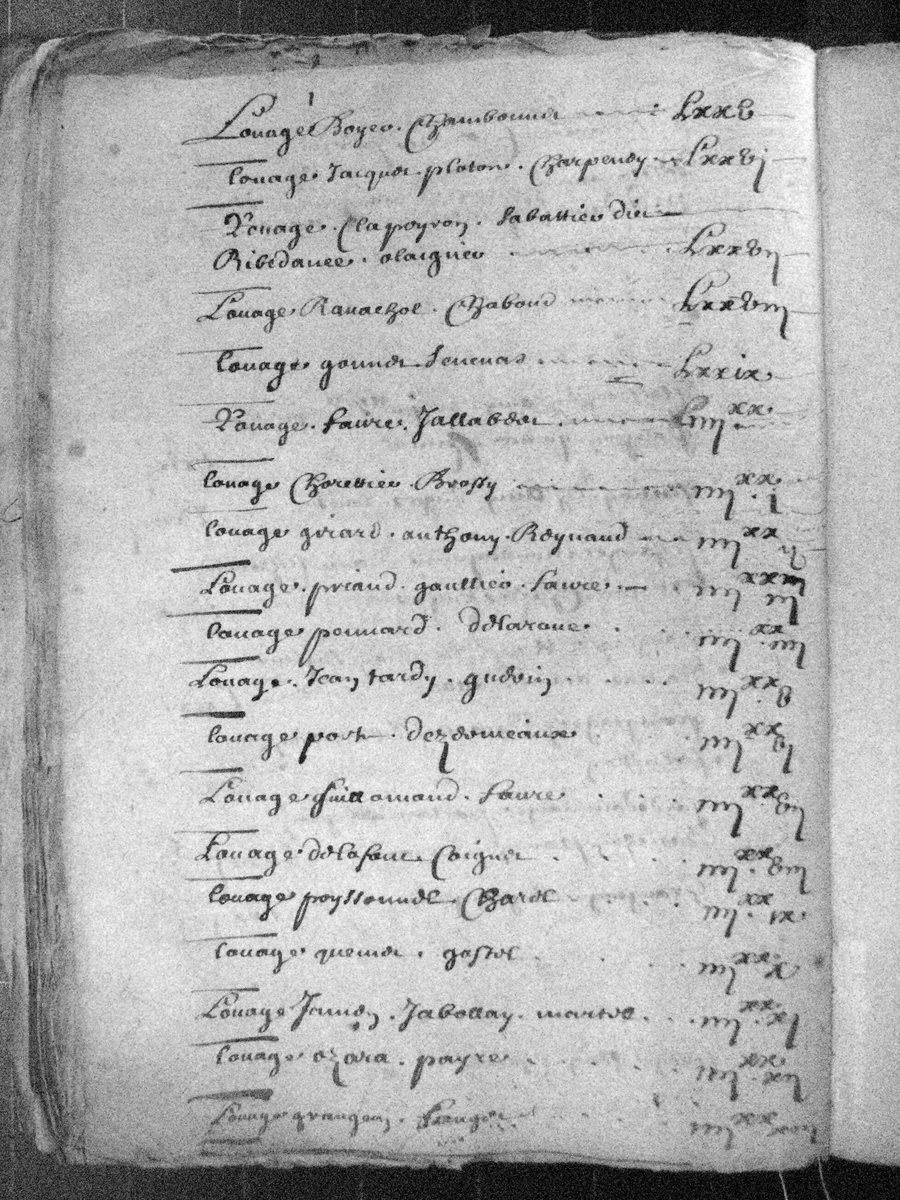 Louage Boyer . Chambonnet Lxxv
louage Jacquet . platon . Charpenay Lxxvj
Louage . Clapeyron . Sabattier dit
Ribedauce . olaignier Lxxvij
Louage Ravachol . Chaboud Lxxviij
louage gonnet Senenas Lxxix
Louage . faure . Jallabert iiij xx
louage Chorettier . Brossy iiij xx . j
louage girard . anthony . Reynaud iiij xx ij
Louage . priaud . gaultier . faure iiij xx iij
louage ponnard . delaroue iiij xx iiij
Louage . Jean tardy . guerin iiij xx . v
louage port . dezdomeaux iiij xx vj
Louage guillomand . faure iiij xx . vij
Louage delafont Coignet iiij xx . viij
louage poyssonnel . Charel iiij xx . ix
louage quemet . gastel iiij xx x
Louage Jamen . Jabollay . martel iiij xx . xj
louage ozara . payre iiij xx xij
Louage grangeon . iiij xx